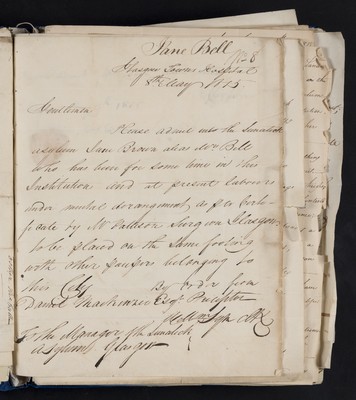 Jane Bell
No 8
Glasgow Towns Hospital
8th May 1815
Gentlemen
Please admit into the Lunatick
asylum Jane Brown alias Mrs Bell
who has been for some time in this
Institution and at present labours
under mental derangement as per Certi-
ficate by Mr Surgeon Glasgow
to be placed on the same footing
with other paupers belonging to
this City By order from
Daniel Mackenzie Esqr Preceptor
To the Manager of the Lunatick
Asylum Glasgow